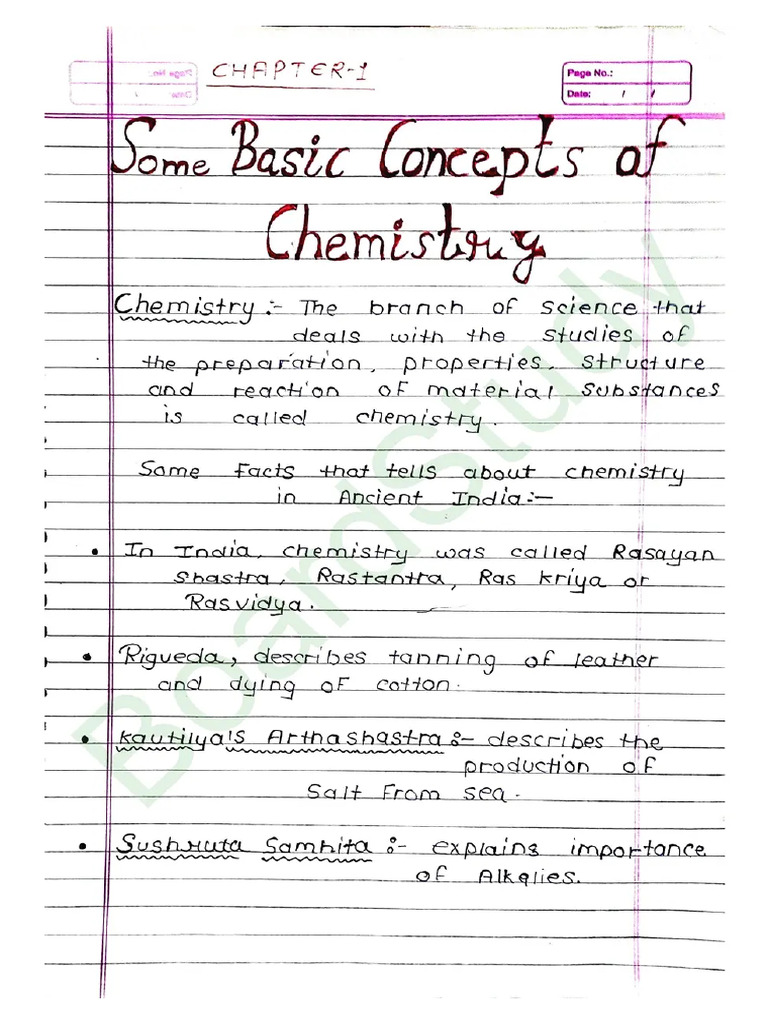 CHAPTER-1
Page No.:
Date: / /
Some Basic Concepts of
Chemistry
Chemistry :- The branch of science that
deals with the studies of
the preparation, properties, structure
and reaction of material substances
is called chemistry.
Some facts that tells about chemistry
in Ancient India:-
• In India, chemistry was called Rasayan
Shastra, Rastantra, Ras kriya or
Rasvidya.
• Rigveda, describes tanning of leather
and dying of cotton.
• Kautilya's Arthashastra :- describes the
production of
Salt from sea.
• Sushruta Samhita :- explains importance
of Alkalies.
BoardStudy